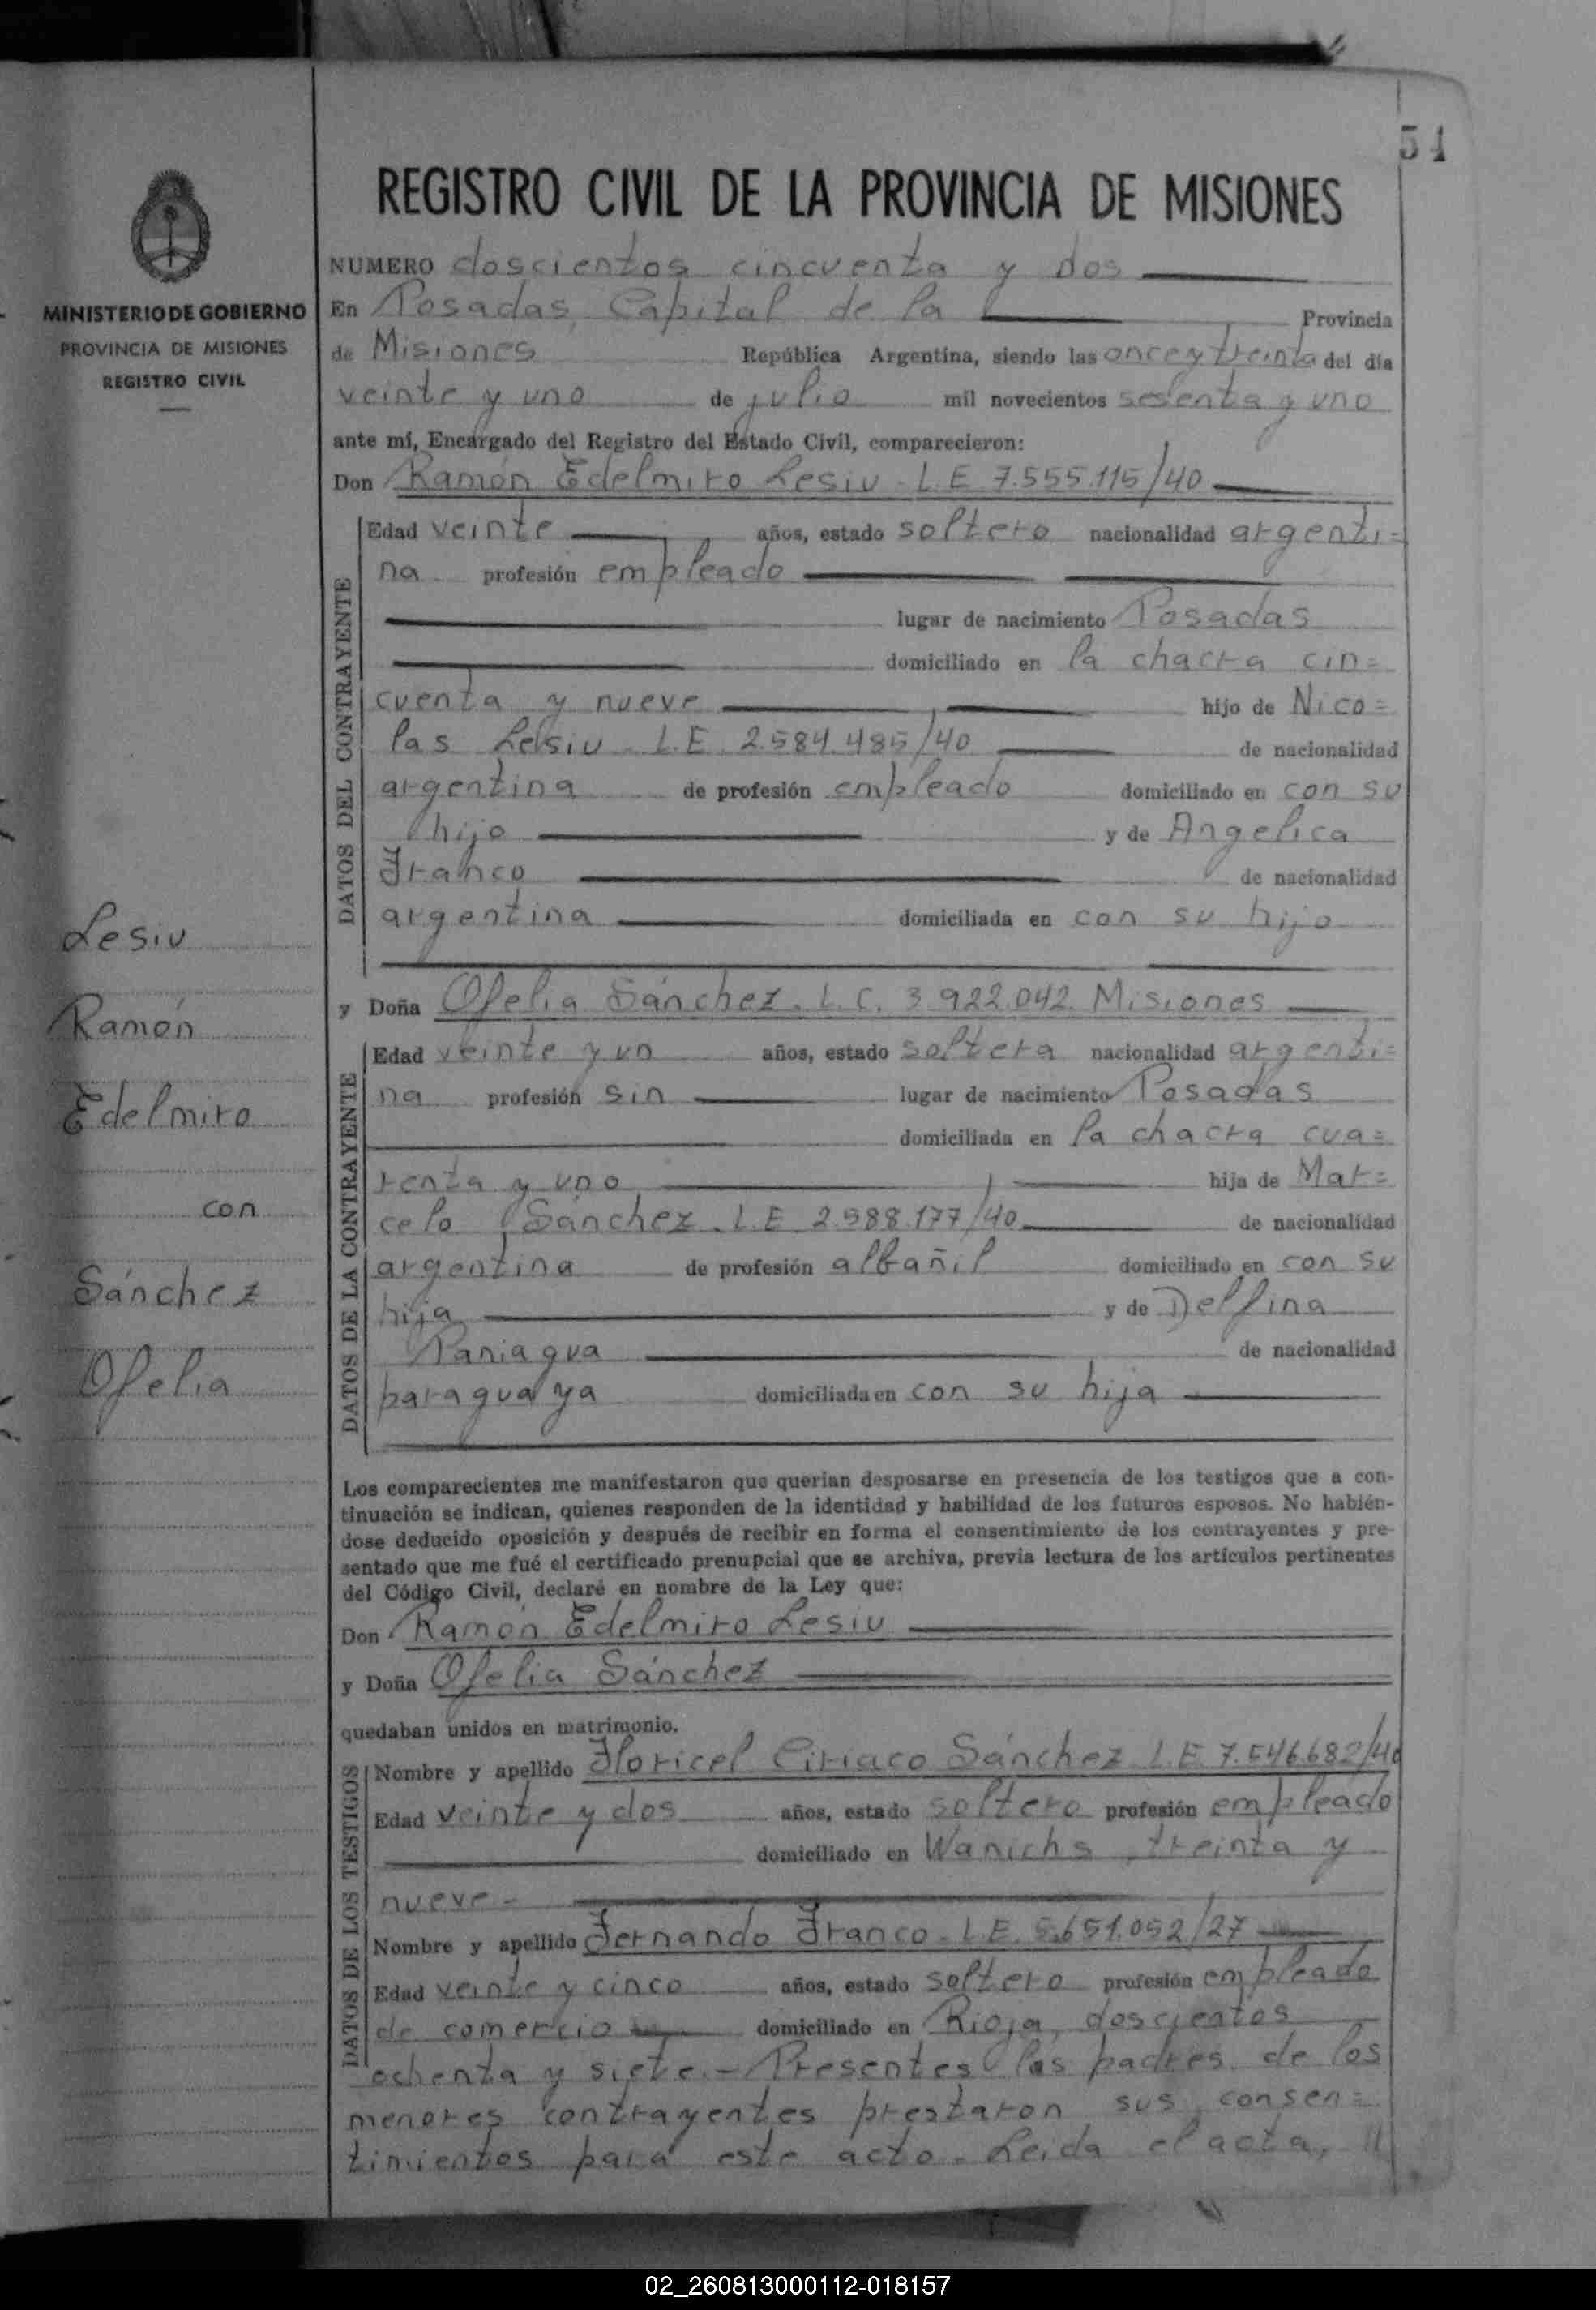 54
REGISTRO CIVIL DE LA PROVINCIA DE MISIONES
MINISTERIO DE GOBIERNO
PROVINCIA DE MISIONES
REGISTRO CIVIL
NUMERO doscientos cincuenta y dos
En Posadas, Capital de la Provincia
de Misiones República Argentina, siendo las once y treinta del día
veinte y uno de julio mil novecientos sesenta y uno
ante mí, Encargado del Registro del Estado Civil, comparecieron:
Don Ramón Edelmiro Lesiu - L.E 7.555.115/40
DATOS DEL CONTRAYENTE
Edad veinte años, estado soltero nacionalidad argenti=
na profesión empleado
lugar de nacimiento Posadas
domiciliado en la chacra cin=
cuenta y nueve hijo de Nico=
las Lesiu - L.E 2.584.485/40 de nacionalidad
argentina de profesión empleado domiciliado en con su
hijo y de Angelica
Franco de nacionalidad
argentina domiciliada en con su hijo
Lesiu
Ramón
Edelmiro
con
Sánchez
Ofelia
y Doña Ofelia Sánchez. L.C. 3.922.042 Misiones
DATOS DE LA CONTRAYENTE
Edad veinte y un años, estado soltera nacionalidad argenti=
na profesión sin lugar de nacimiento Posadas
domiciliada en la chacra cua=
renta y uno hija de Mar=
celo Sánchez. L.E 2.588.177/40 de nacionalidad
argentina de profesión albañil domiciliado en con su
hija y de Delfina
Paniagua de nacionalidad
paraguaya domiciliada en con su hija
Los comparecientes me manifestaron que querían desposarse en presencia de los testigos que a con-
tinuación se indican, quienes responden de la identidad y habilidad de los futuros esposos. No habién-
dose deducido oposición y después de recibir en forma el consentimiento de los contrayentes y pre-
sentado que me fué el certificado prenupcial que se archiva, previa lectura de los artículos pertinentes
del Código Civil, declaré en nombre de la Ley que:
Don Ramón Edelmiro Lesiu
y Doña Ofelia Sánchez
quedaban unidos en matrimonio.
DATOS DE LOS TESTIGOS
Nombre y apellido Floricel Ciriaco Sánchez L.E 7.546.682/40
Edad veinte y dos años, estado soltero profesión empleado
domiciliado en Wanichs, treinta y
nueve -
Nombre y apellido Fernando Franco - L.E 5.651.052/27
Edad veinte y cinco años, estado soltero profesión empleado
de comercio domiciliado en Rioja, doscientos
ochenta y siete. - Presentes los padres de los
menores contrayentes prestaron sus consen=
timientos para este acto. Leida el acta, //
02_260813000112-018157